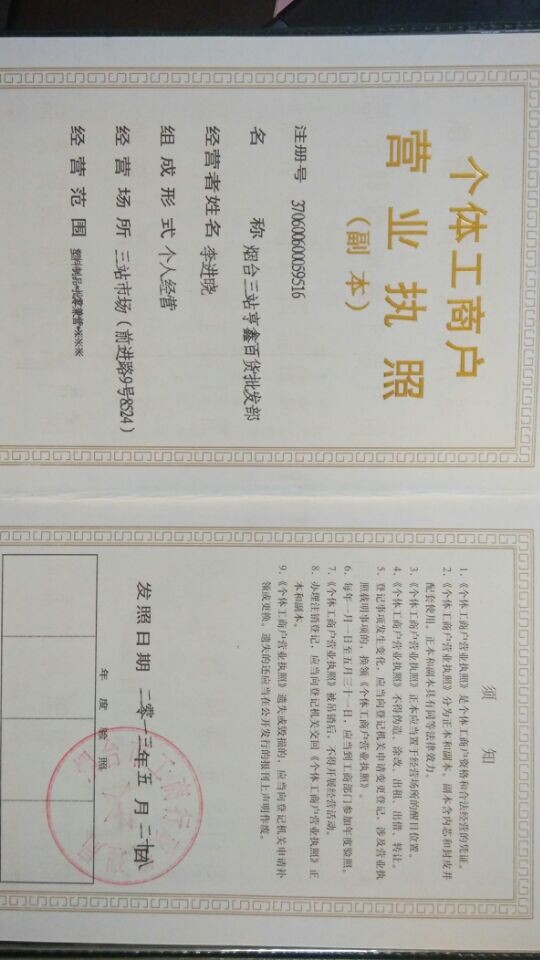 个体工商户
营业执照
（副本）
注册号 370600600059516
名称 烟台三站亨鑫百货批发部
经营者姓名 李进晓
组成形式 个人经营
经营场所 三站市场（前进路9号8524）
经营范围
须知
1.《个体工商户营业执照》是个体工商户资格和合法经营的凭证。
2.《个体工商户营业执照》分为正本和副本。副本含内芯和封皮并
配套使用。正本和副本具有同等法律效力。
3.《个体工商户营业执照》正本应当置于经营场所的醒目位置。
4.《个体工商户营业执照》不得伪造、涂改、出租、出借、转让。
5.登记事项发生变化，应当向登记机关申请变更登记，涉及营业执
照载明事项的，换领《个体工商户营业执照》。
6.每年一月一日至五月三十一日，应当到工商部门参加年度验照。
7.《个体工商户营业执照》被吊销后，不得开展经营活动。
8.办理注销登记，应当向登记机关交回《个体工商户营业执照》正
本和副本。
9.《个体工商户营业执照》遗失或毁损的，应当向登记机关申请补
领或更换。遗失的还应当在公开发行的报刊上声明作废。
发照日期 二零一三年五月二十四
年度验照